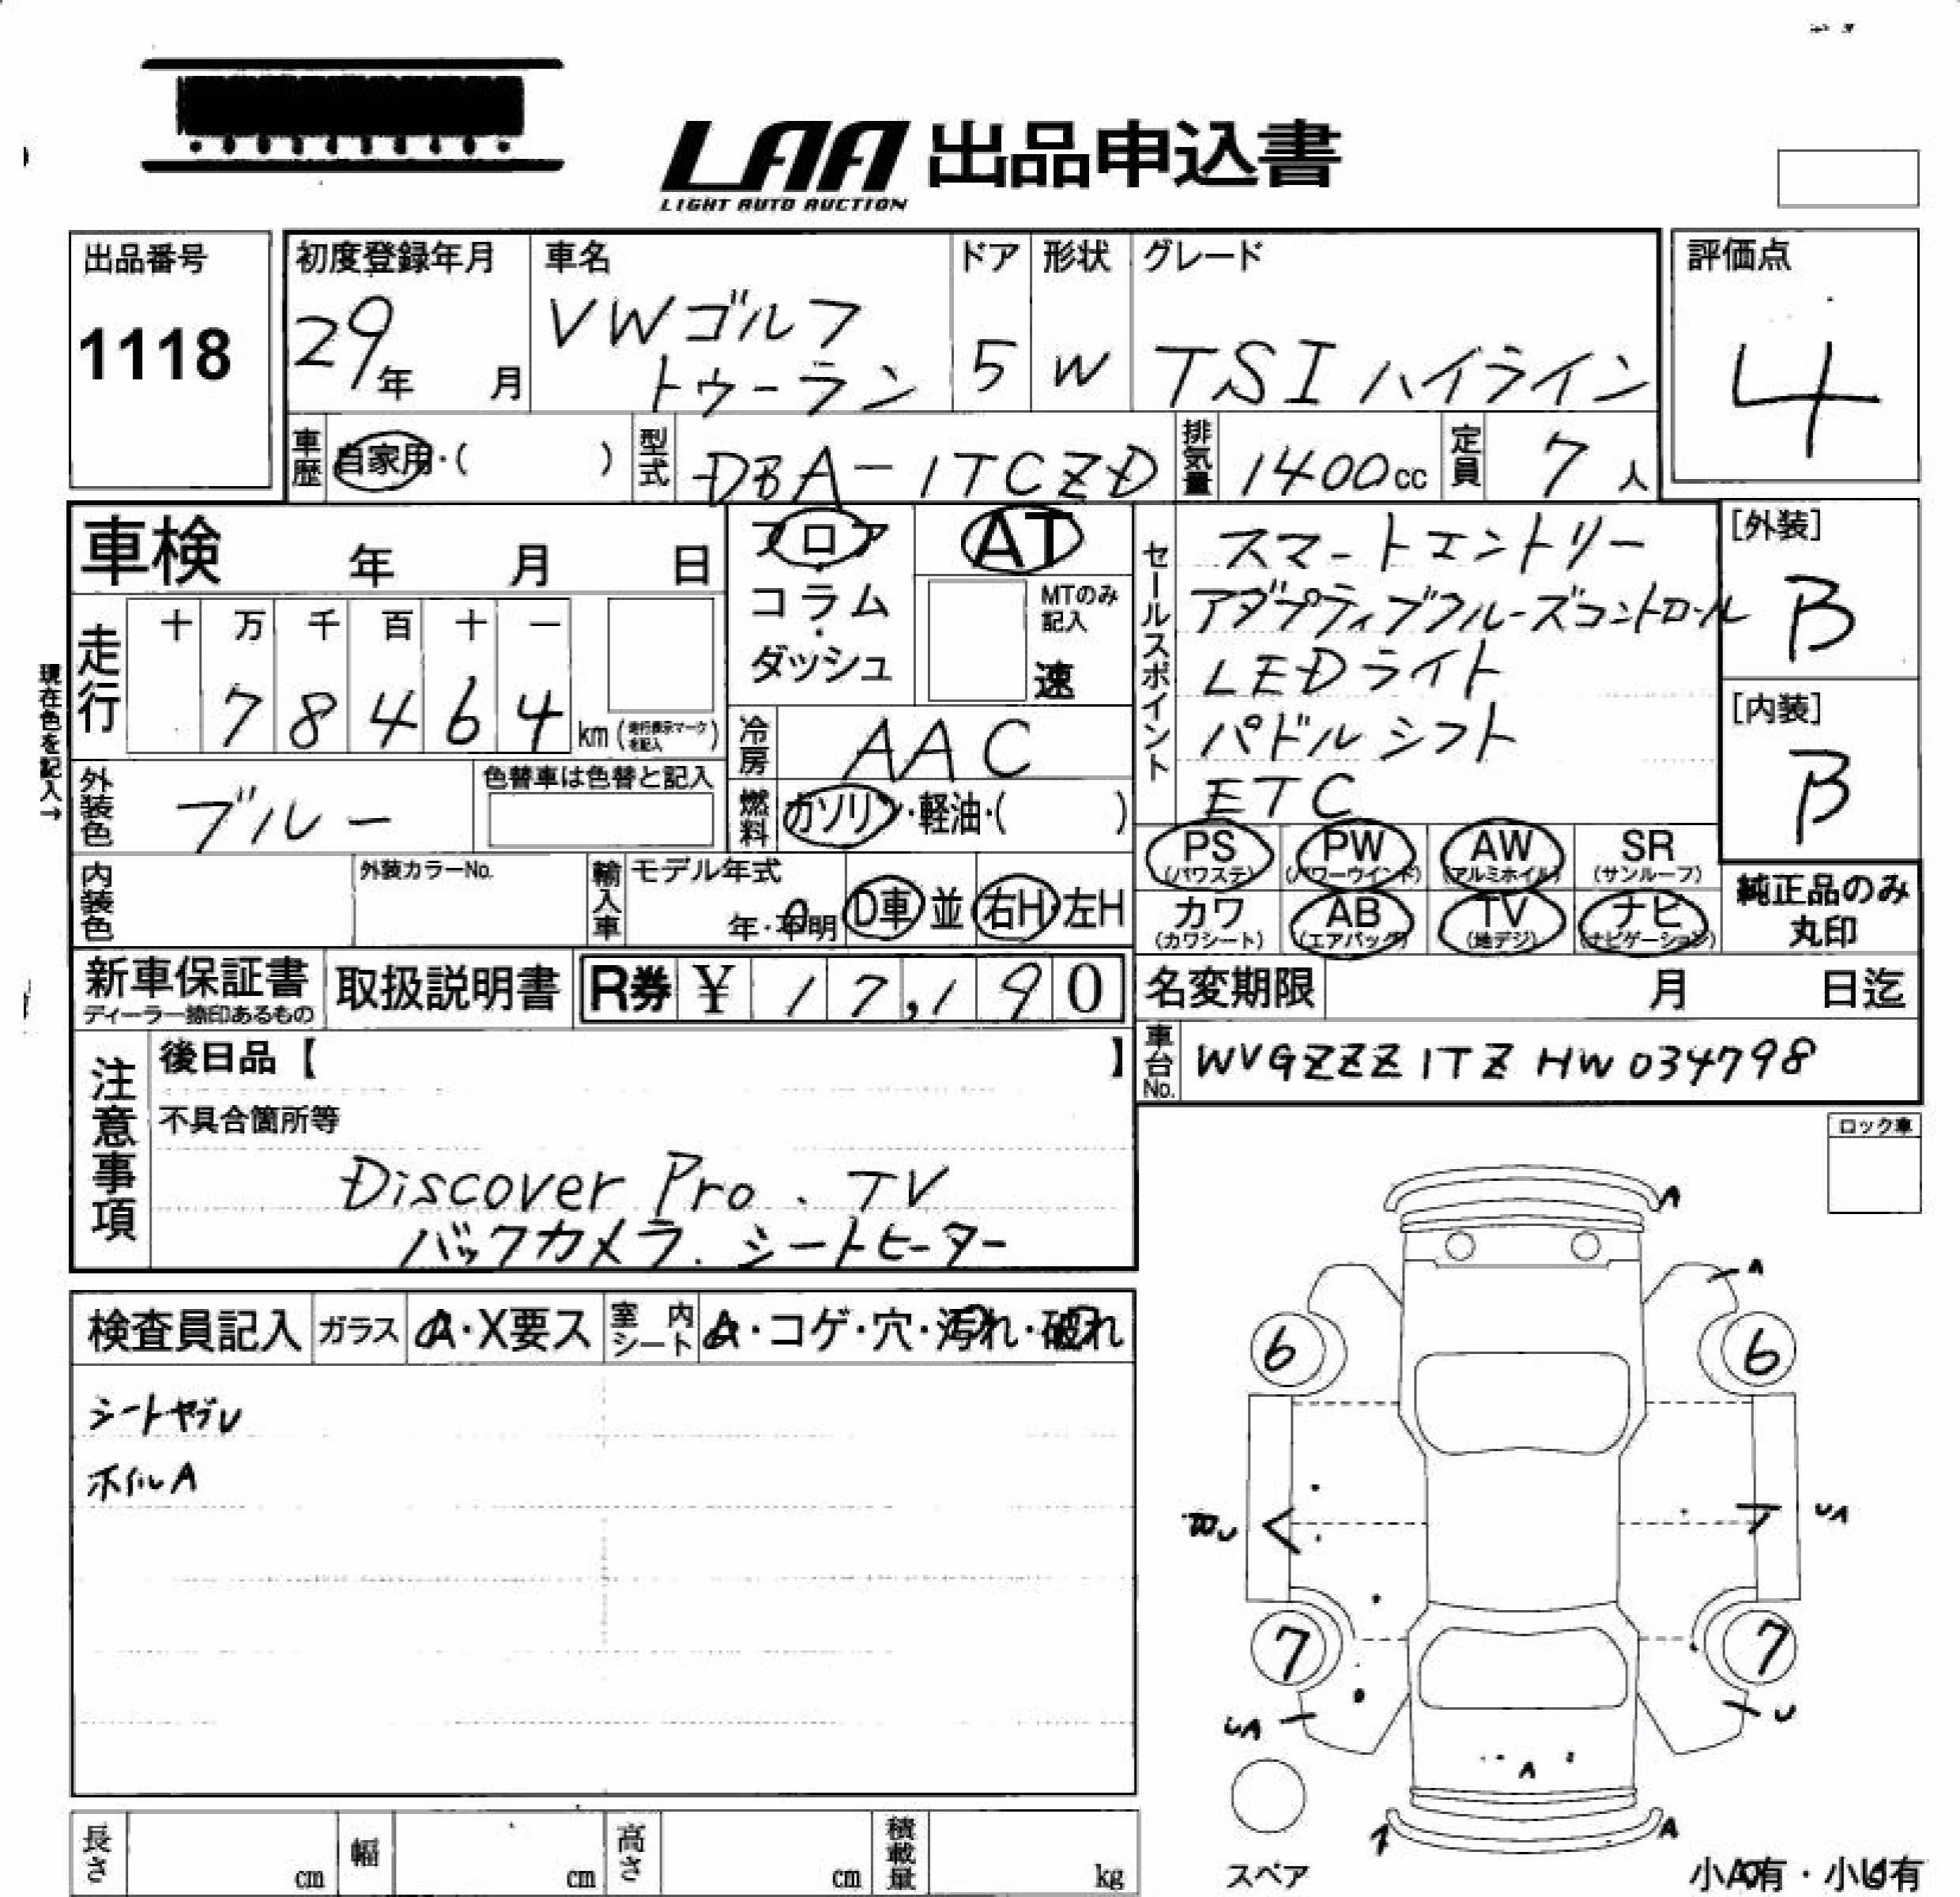 LAA 出品申込書
LIGHT AUTO AUCTION
出品番号
1118
初度登録年月
29年 月
車名
VWゴルフ
トゥーラン
ドア
5
形状
W
グレード
TSI ハイライン
評価点
4
車歴 自家用・( )
型式 DBA-1TCZD
排気量 1400cc
定員 7人
車検 年 月 日
フロア
コラム
・
ダッシュ
AT
MTのみ
記入
速
セールスポイント
スマートエントリー
アダプティブクルーズコントロール
LEDライト
パドルシフト
ETC
[外装]
B
[内装]
B
現在色を記入→
走行
十 万 千 百 十 一
7 8 4 6 4 km(走行表示マークを記入)
冷房 AAC
外装色 ブルー
色替車は色替と記入
燃料 ガソリン・軽油・( )
PS
(パワステ)
PW
(パワーウインド)
AW
(アルミホイル)
SR
(サンルーフ)
カワ
(カワシート)
AB
(エアバッグ)
TV
(地デジ)
ナビ
(ナビゲーション)
純正品のみ
丸印
内装色
外装カラーNo.
輸入車
モデル年式
年・不明
D車 並 右H・左H
新車保証書
ディーラー捺印あるもの
取扱説明書
R券 ¥ 17,190
名変期限 月 日迄
車台No. WVGZZZ1TZHW034798
注意事項
後日品【 】
不具合箇所等
Discover Pro. TV
バックカメラ. シートヒーター
ロック車
検査員記入 ガラス A・X要ス 室内シート A・コゲ・穴・汚れ・破れ
シートヤブレ
ホイルA
A
A
6 6
UA
7 7
UA
U
A
A
スペア
長さ cm 幅 cm 高さ cm 積載量 kg
小A有・小U有